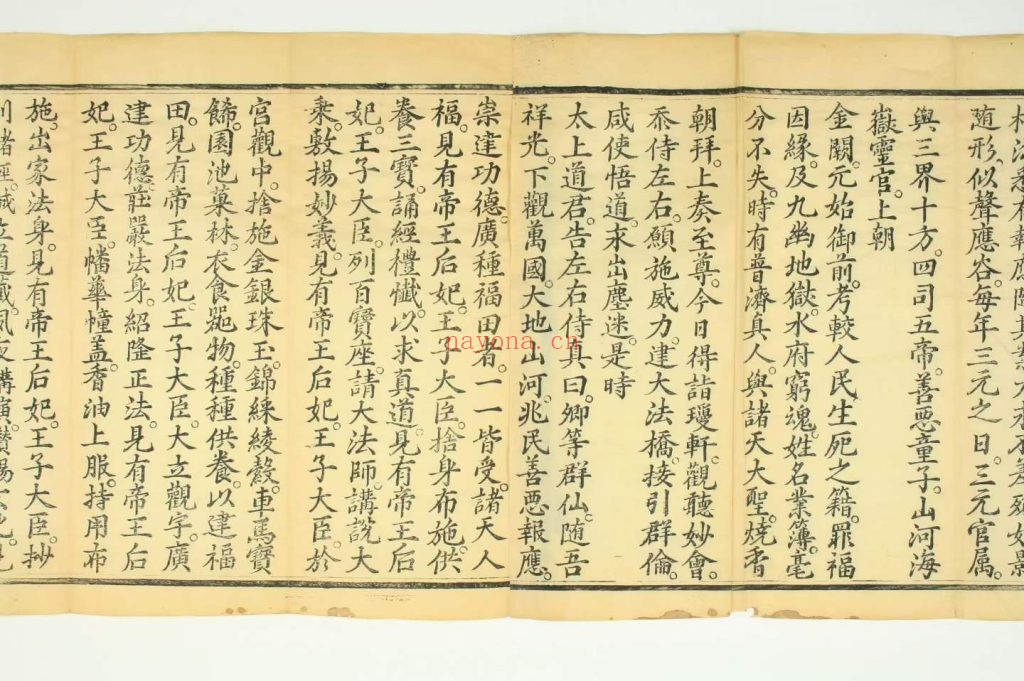 隨形，似聲應谷。每年三元之日，三元官属，
與三界十方。四司五帝。善惡童子。山河海
嶽靈官。上朝
金闕。元始御前。考較人民生死之籍。罪福
因緣。及九幽地獄。水府窮魂。姓名業簿。毫
分不失。時有普濟真人。與諸天大聖。燒香
朝拜。上奏至尊。今日得詣瓊軒。觀聽妙會。
忝侍左右。願施威力。建大法橋。接引群倫。
咸使悟道。求出塵迷。是時
太上道君。告左右侍真曰。卿等群仙。随吾
祥光。下觀萬國。大地山河。兆民善惡報應。
崇建功德。廣種福田者。一一皆受。諸天人
福。見有帝王后妃。王子大臣。捨身布施。供
養三寶。誦經禮懺。以求真道。見有帝王后
妃。王子大臣。列百寶座。請大法師。講說大
乘。敷揚妙義。見有帝王后妃。王子大臣。於
宮觀中。捨施金銀珠玉。錦綵綾縠。車馬寶
餙。園池菓林。衣食噐物。種種供養。以建福
田。見有帝王后妃。王子大臣。大立觀宇。廣
建功德。莊嚴法身。紹隆正法。見有帝王后
妃。王子大臣。幡華幢盖。香油上服。持用布
施。出家法身。見有帝王后妃。王子大臣。抄
nayona.cn